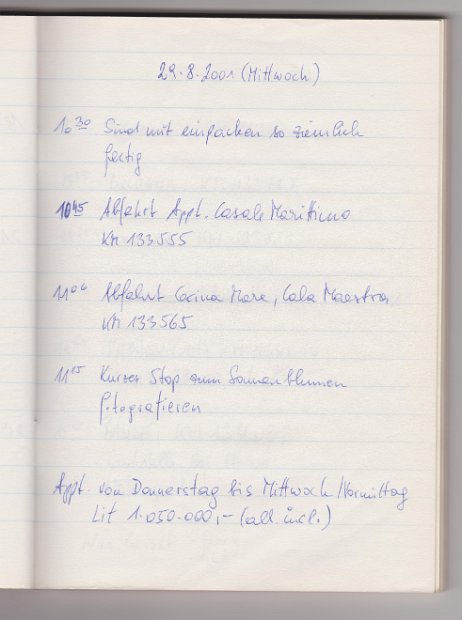 29.8.2001 (Mittwoch)
10 30 Sind mit einpacken so ziemlich
fertig
10 45 Abfahrt Appt. Casale Marittimo
KM 133555
11 06 Abfahrt Cecina Mare, Cala Maestra
KM 133565
11 15 Kurzer Stop zum Sonnenblumen
fotografieren
Appt. von Donnerstag bis Mittwoch/Vormittag
Lit 1.050.000,- (all. incl.)